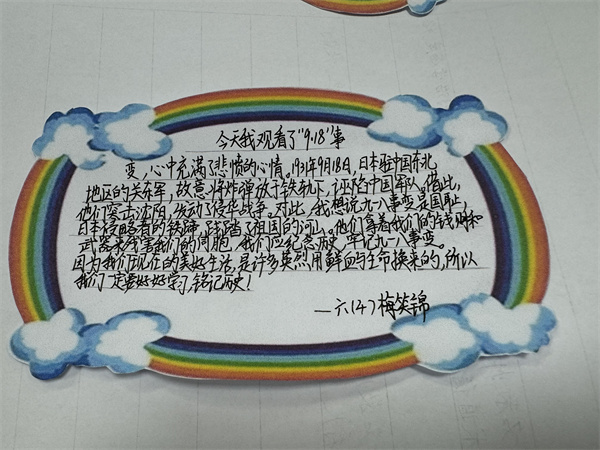 今天我观看了"9·18"事
变,心中充满了悲愤的心情。1931年9月18日,日本驻中国东北
地区的关东军,故意将炸弹放于铁轨下,诬陷中国军队。借此,
他们突击沈阳,发动了侵华战争。对此,我想说九一八事变是国耻,
日本侵略者的铁蹄,践踏了祖国的河山。他们拿着我们的钱财和
武器来残害我们的同胞,我们应纪念历史,牢记九一八事变。
因为我们现在的美好生活,是许多英烈用鲜血与生命换来的,所以
我们一定要好好学习,铭记历史!
—六(4)梅笑锦